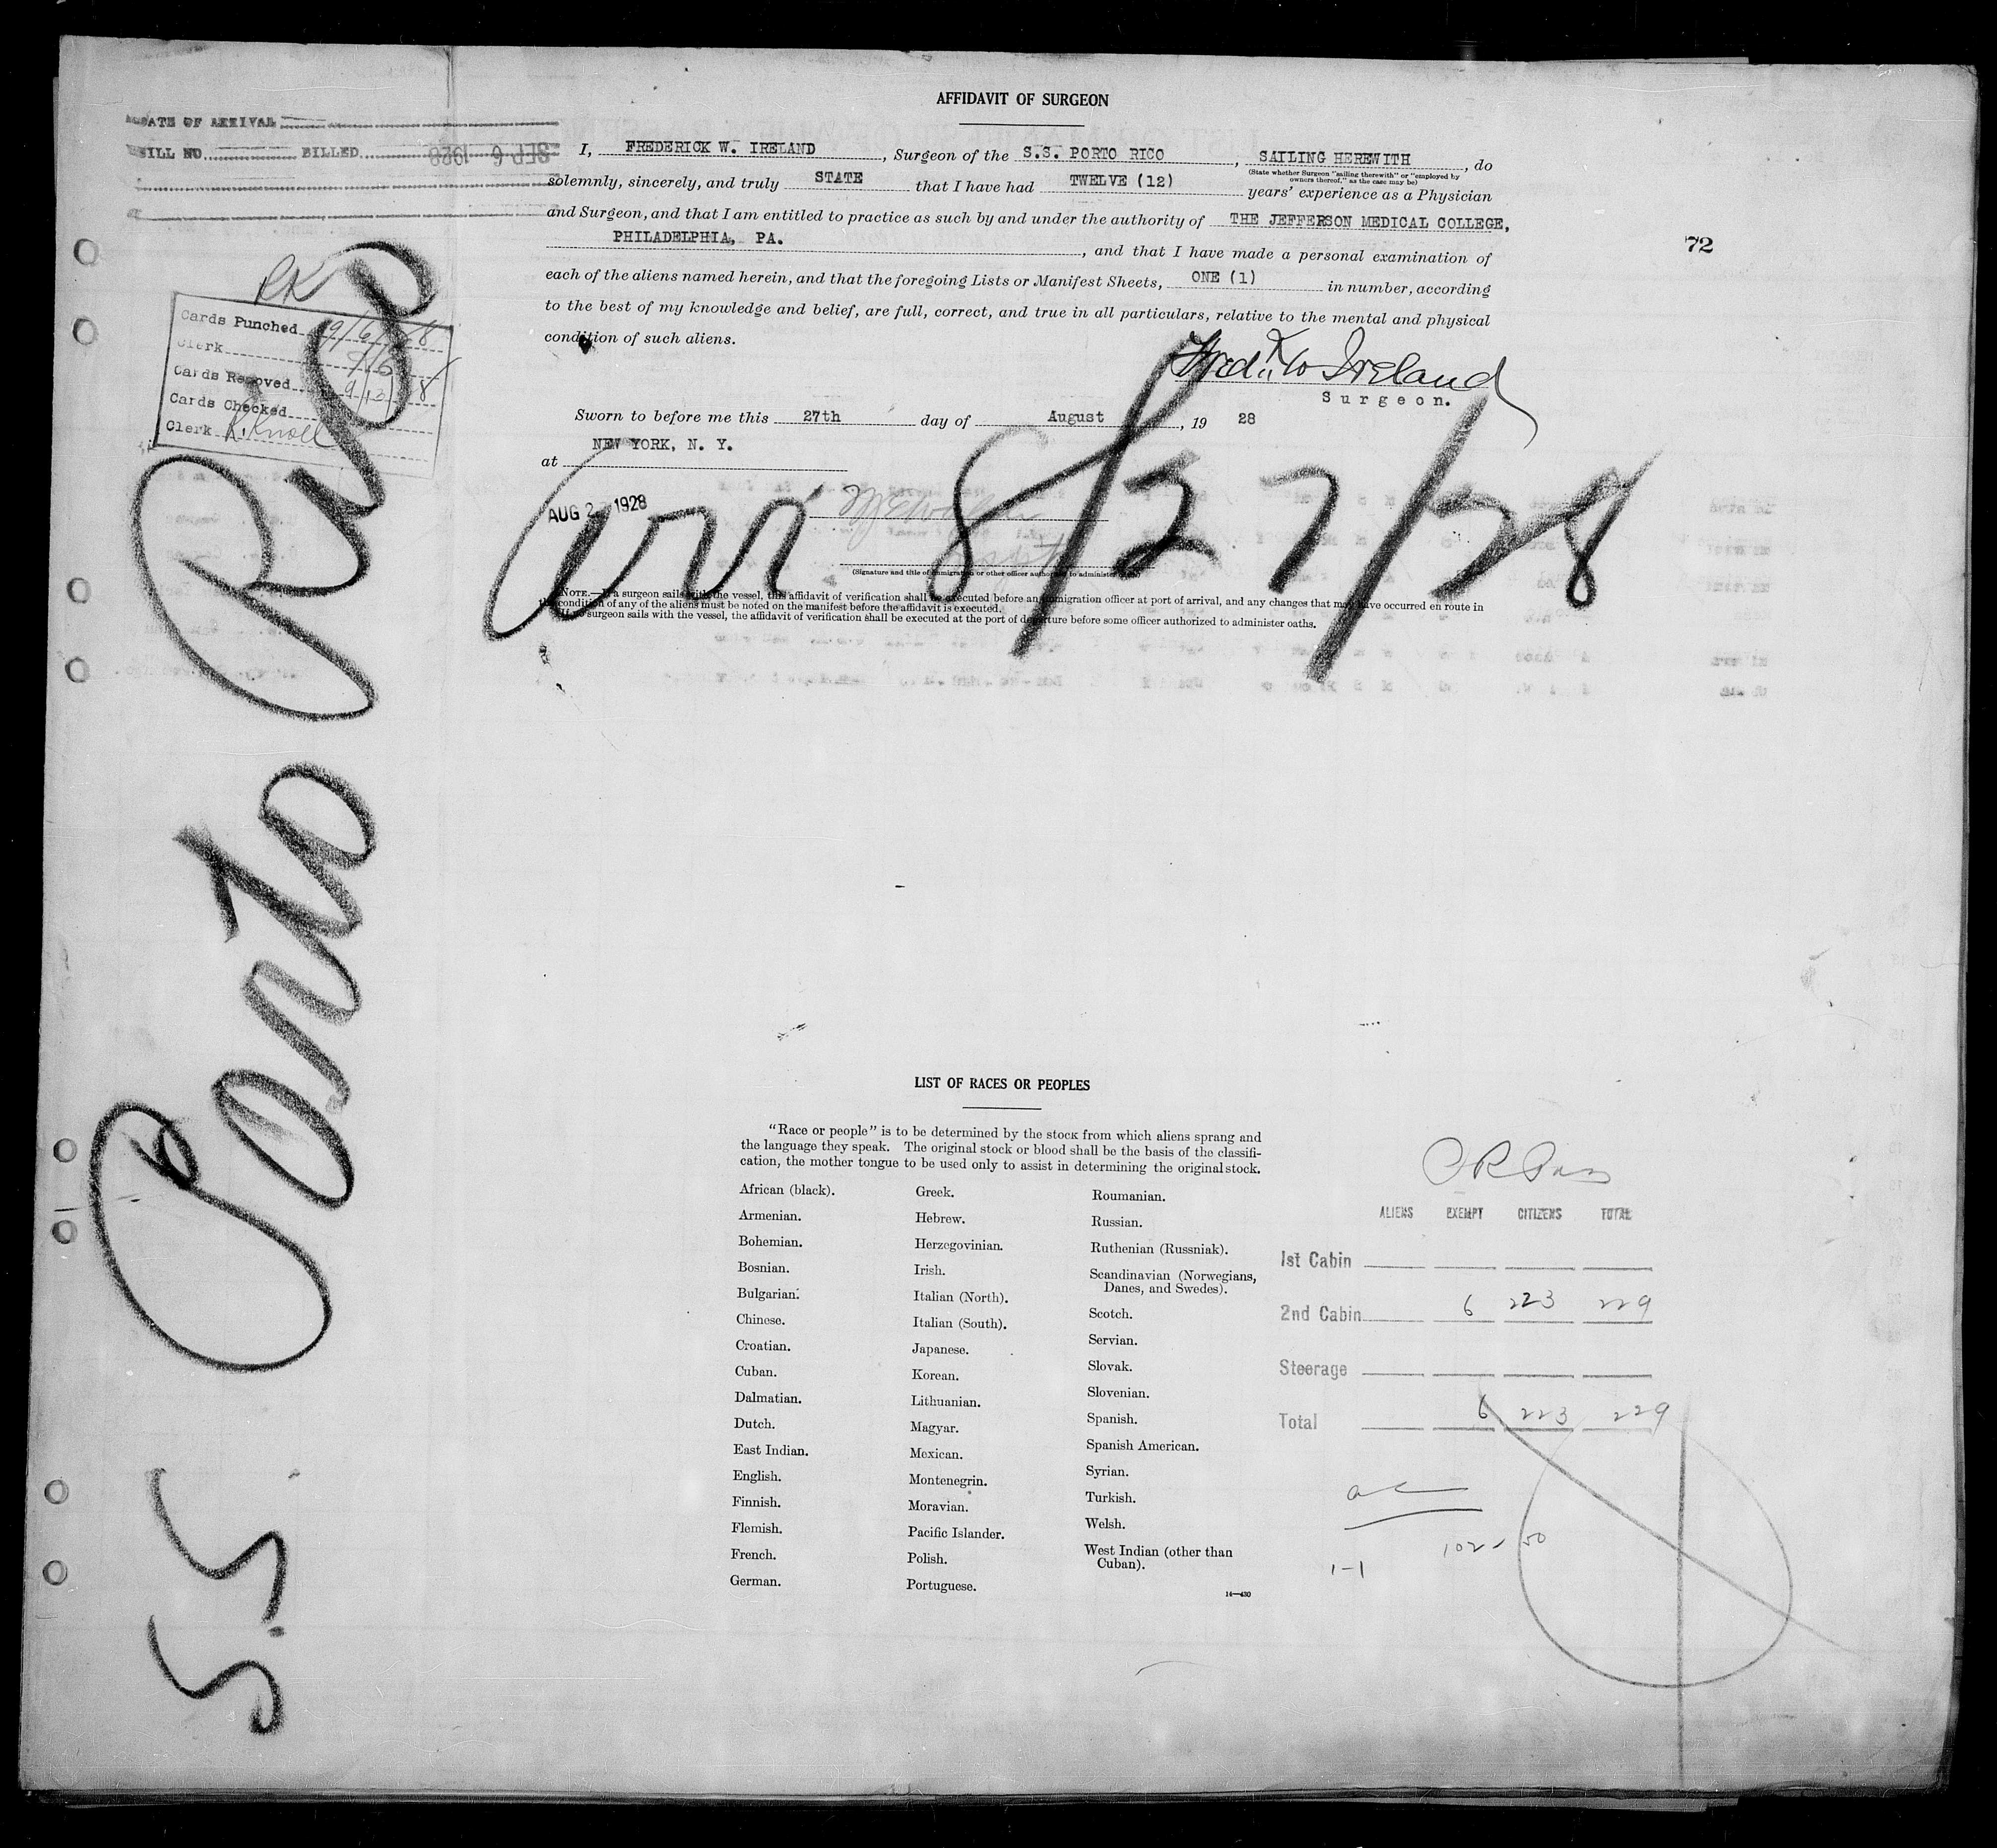 AFFIDAVIT OF SURGEON
DATE OF ARRIVAL
BILL NO. BILLED SEP 6 1928
I, FREDERICK W. IRELAND, Surgeon of the S.S. PORTO RICO, SAILING HEREWITH, do
(State whether Surgeon "sailing therewith" or "employed by
owners thereof," as the case may be)
solemnly, sincerely, and truly STATE that I have had TWELVE (12) years' experience as a Physician
and Surgeon, and that I am entitled to practice as such by and under the authority of THE JEFFERSON MEDICAL COLLEGE,
PHILADELPHIA, PA., and that I have made a personal examination of
each of the aliens named herein, and that the foregoing Lists or Manifest Sheets, ONE (1) in number, according
to the best of my knowledge and belief, are full, correct, and true in all particulars, relative to the mental and physical
condition of such aliens.
72
Fredk W Ireland
Surgeon.
Sworn to before me this 27th day of August, 19 28
at NEW YORK, N. Y.
AUG 2 1928
arr 8/27/28
(Signature and title of immigration or other officer authorized to administer
NOTE.—If a surgeon sails with the vessel, this affidavit of verification shall be executed before an immigration officer at port of arrival, and any changes that may have occurred en route in
the condition of any of the aliens must be noted on the manifest before the affidavit is executed.
If no surgeon sails with the vessel, the affidavit of verification shall be executed at the port of departure before some officer authorized to administer oaths.
RK
Cards Punched 9/6/28
Clerk
Cards Removed
Cards Checked
Clerk R. Knoll
S.S. Porto Rico
LIST OF RACES OR PEOPLES
"Race or people" is to be determined by the stock from which aliens sprang and
the language they speak. The original stock or blood shall be the basis of the classifi-
cation, the mother tongue to be used only to assist in determining the original stock.
African (black).
Armenian.
Bohemian.
Bosnian.
Bulgarian.
Chinese.
Croatian.
Cuban.
Dalmatian.
Dutch.
East Indian.
English.
Finnish.
Flemish.
French.
German.
Greek.
Hebrew.
Herzegovinian.
Irish.
Italian (North).
Italian (South).
Japanese.
Korean.
Lithuanian.
Magyar.
Mexican.
Montenegrin.
Moravian.
Pacific Islander.
Polish.
Portuguese.
Roumanian.
Russian.
Ruthenian (Russniak).
Scandinavian (Norwegians,
Danes, and Swedes).
Scotch.
Servian.
Slovak.
Slovenian.
Spanish.
Spanish American.
Syrian.
Turkish.
Welsh.
West Indian (other than
Cuban).
14—430
ALIENS EXEMPT CITIZENS TOTAL
1st Cabin
2nd Cabin 6 223 229
Steerage
Total 6 223 229
1-1